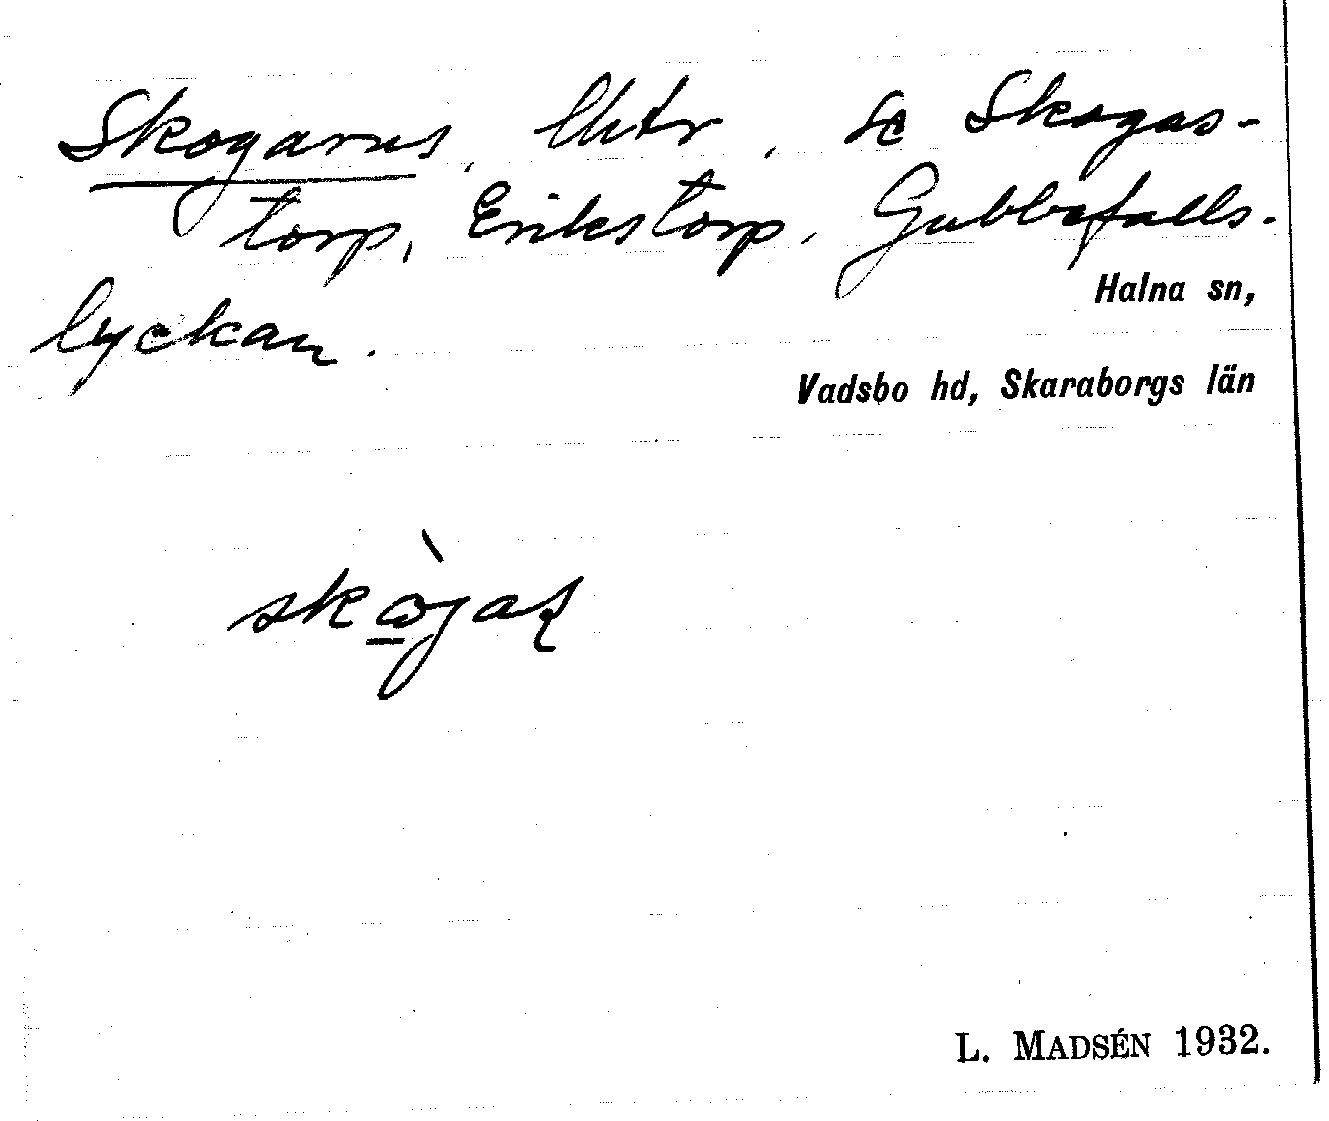 Skogarus, lht, se Skogas-
torp, Erikstorp, Gubbefalls-
lyckan.
Halna sn,
Vadsbo hd, Skaraborgs län
L. MADSÉN 1932.